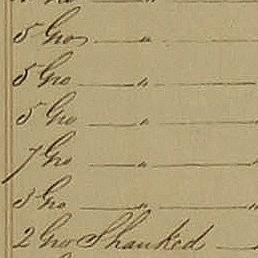 5 Gro " 
5 Gro "
5 Gro "
7 Gro "
3 Gro " "
2 Gro Shanked